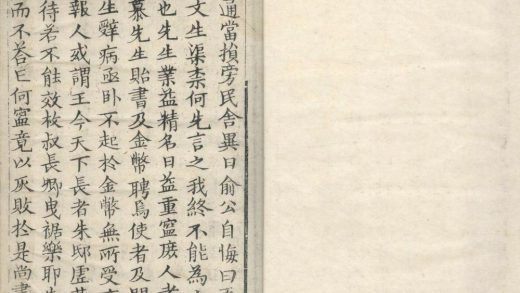 通當損旁民舍異日俞公自悔曰
文生渠柰何先言之我終不能為
也先生業益精名日益重寍庶人者
慕先生貽書及金幣聘焉使者及門
生辤病亟卧不起於金幣無所受
報人或謂王今天下長者朱邸虛其
待若不能效枚叔長卿曳裾樂耶
而不荅亡何寍竟以灰敗於是尚書